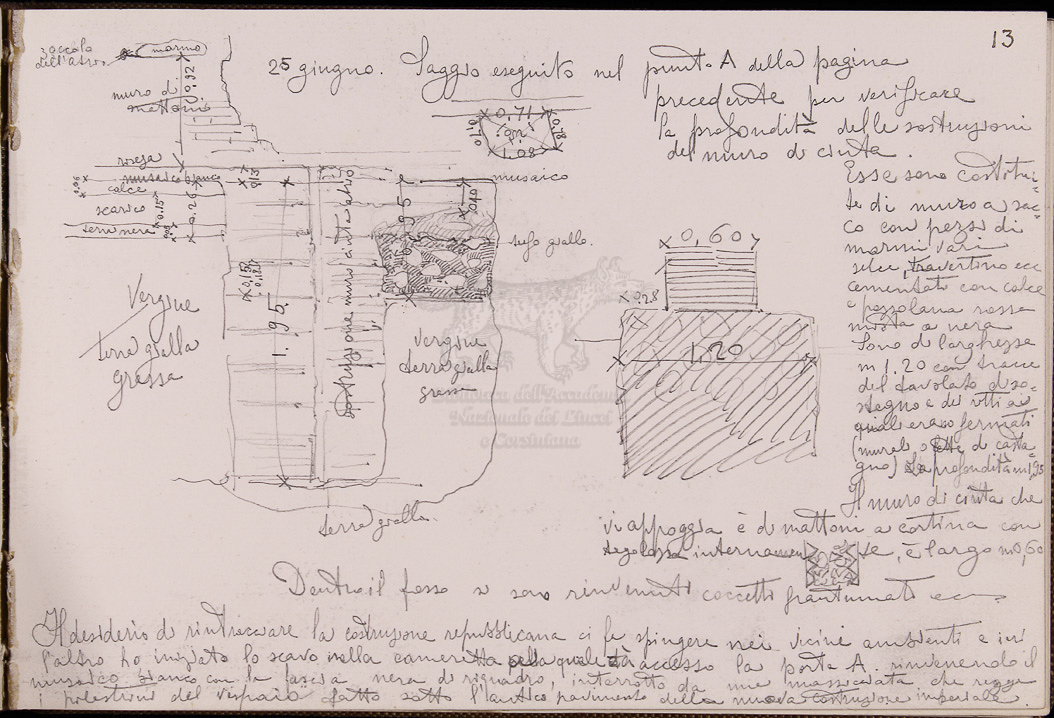 13
25 giugno. Saggio eseguito nel punto A della pagina
precedente per verificare
la profondità delle sostruzioni
del muro di cinta.
zoccolo
dell'atrio
marmo
0.92
muro di
mattoni
0,71
1.08
0.18
mosaico
musaico bianco
0.06
calce
scarico
0.15
0.26
terra nera
0.13
0.40
tufo giallo.
Vergine
terra gialla
grassa
1.95
sostruzione muro cinta atrio
vergine
terra gialla
grassa
terra gialla.
0,60
0.28
1,20
Esse sono costitui-
te di muro a sac-
co con pezzi di
marmi vari
selce, travertino ecc
cementati con calce
e pozzolana rossa
mista a nera
Sono di larghezza
m 1.20 con tracce
del tavolato di so-
stegno e dei ritti ai
quali erano fermati
di casta-
gno) La profondità m 1,95
Il muro di cinta che
vi appoggia è di mattoni a cortina con
internamente, è largo m 0,60
Dentro il fosso si sono rinvenuti coccetti frantumati ecc.
Il desiderio di rintracciare la costruzione repubblicana ci fa spingere nei vicini ambienti e in
l'altro ho iniziato lo scavo nella cameretta alla quale dà accesso la porta A. rinvenendo il
musaico bianco con la fascia nera di riquadro, interrotto da una massicciata che regge
i pilastrini del vespaio fatto sotto l'antico pavimento della nuova costruzione imperiale.
Biblioteca dell'Accademia
Nazionale dei Lincei
e Corsiniana